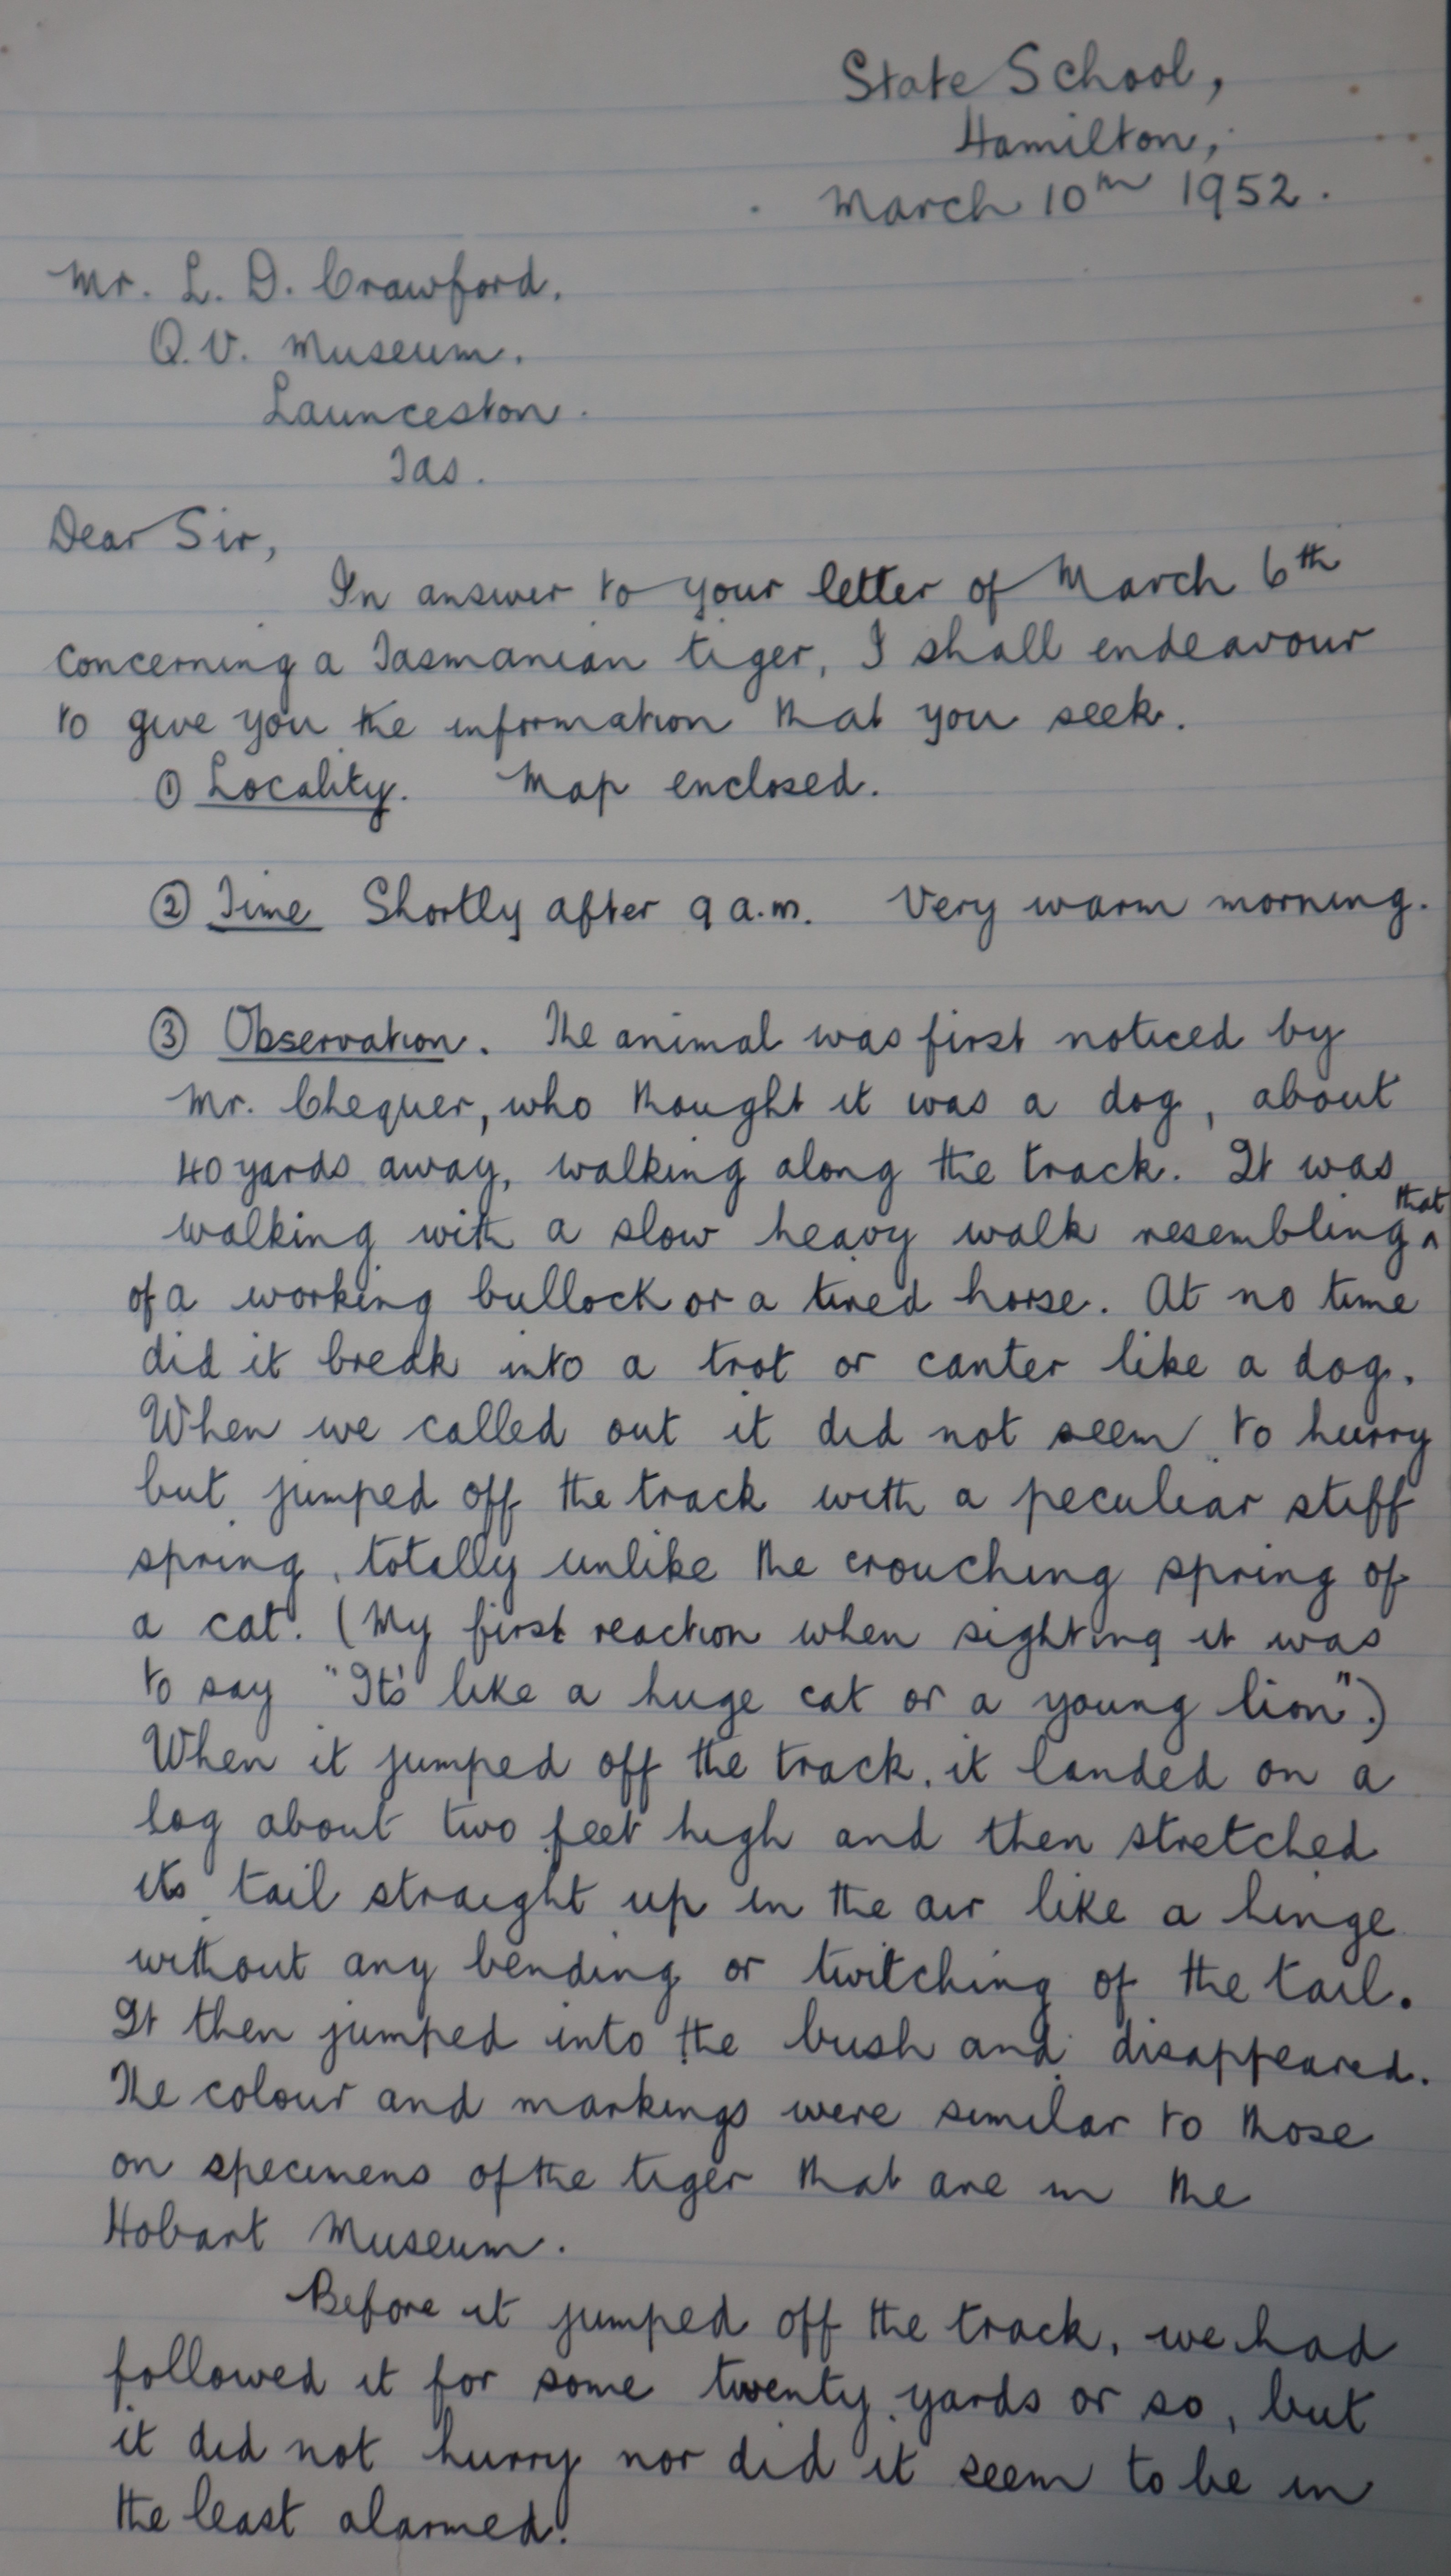 State School,
Hamilton,
March 10th 1952.
Mr. L. D. Crawford.
Q.V. Museum.
Launceston.
Tas.
Dear Sir,
In answer to your letter of March 6th
concerning a Tasmanian tiger, I shall endeavour
to give you the information that you seek.
① Locality. Map enclosed.
② Time Shortly after 9 a.m. Very warm morning.
③ Observation. The animal was first noticed by
Mr. Chequer, who thought it was a dog, about
40 yards away, walking along the track. It was
walking with a slow heavy walk resembling ^that
of a working bullock or a tired horse. At no time
did it break into a trot or canter like a dog.
When we called out it did not seem to hurry
but jumped off the track with a peculiar stiff
spring, totally unlike the crouching spring of
a cat. (My first reaction when sighting it was
to say "It's like a huge cat or a young lion".)
When it jumped off the track, it landed on a
log about two feet high and then stretched
its tail straight up in the air like a hinge
without any bending or twitching of the tail.
It then jumped into the bush and disappeared.
The colour and markings were similar to those
on specimens of the tiger that are in the
Hobart Museum.
Before it jumped off the track, we had
followed it for some twenty yards or so, but
it did not hurry nor did it seem to be in
the least alarmed.